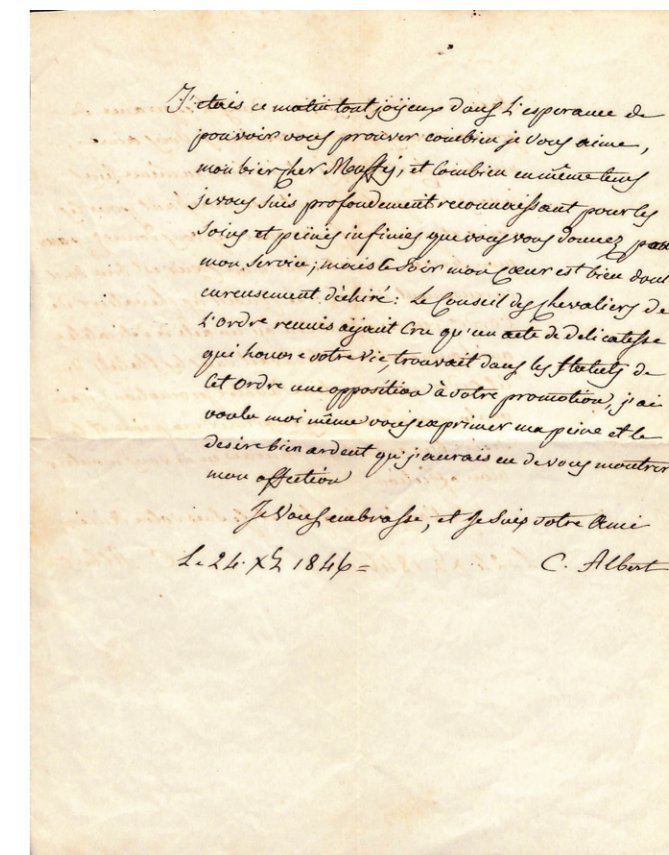 J'etais ce matin tout joÿeux dans l'esperance de
pouvoir vous prouver combien je vous aime,
mon bien cher Maffeÿ, et combien en même tems
je vous suis profondement reconnaissant pour les
soins et peines infinies que vous vous donnez pour
mon service; mais le soir mon cœur est bien doul
eureusement déchiré: Le Conseil des Chevaliers de
L'ordre reunis aÿant cru qu'un acte de delicatesse
qui honore votre vie, trouvait dans les Statuts de
Cet Ordre une opposition à votre promotion, j'ai
voulu moi même vous exprimer ma peine et le
desire bien ardent que j'aurais eu de vous montrer
mon affection
Je Vous embrasse, et je suis votre Ami
Le 24. Xb 1846 =
C. Albert